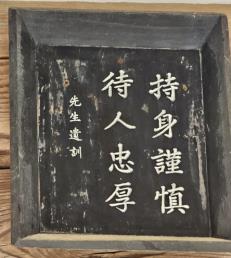 持身謹慎
待人忠厚
先生遺訓